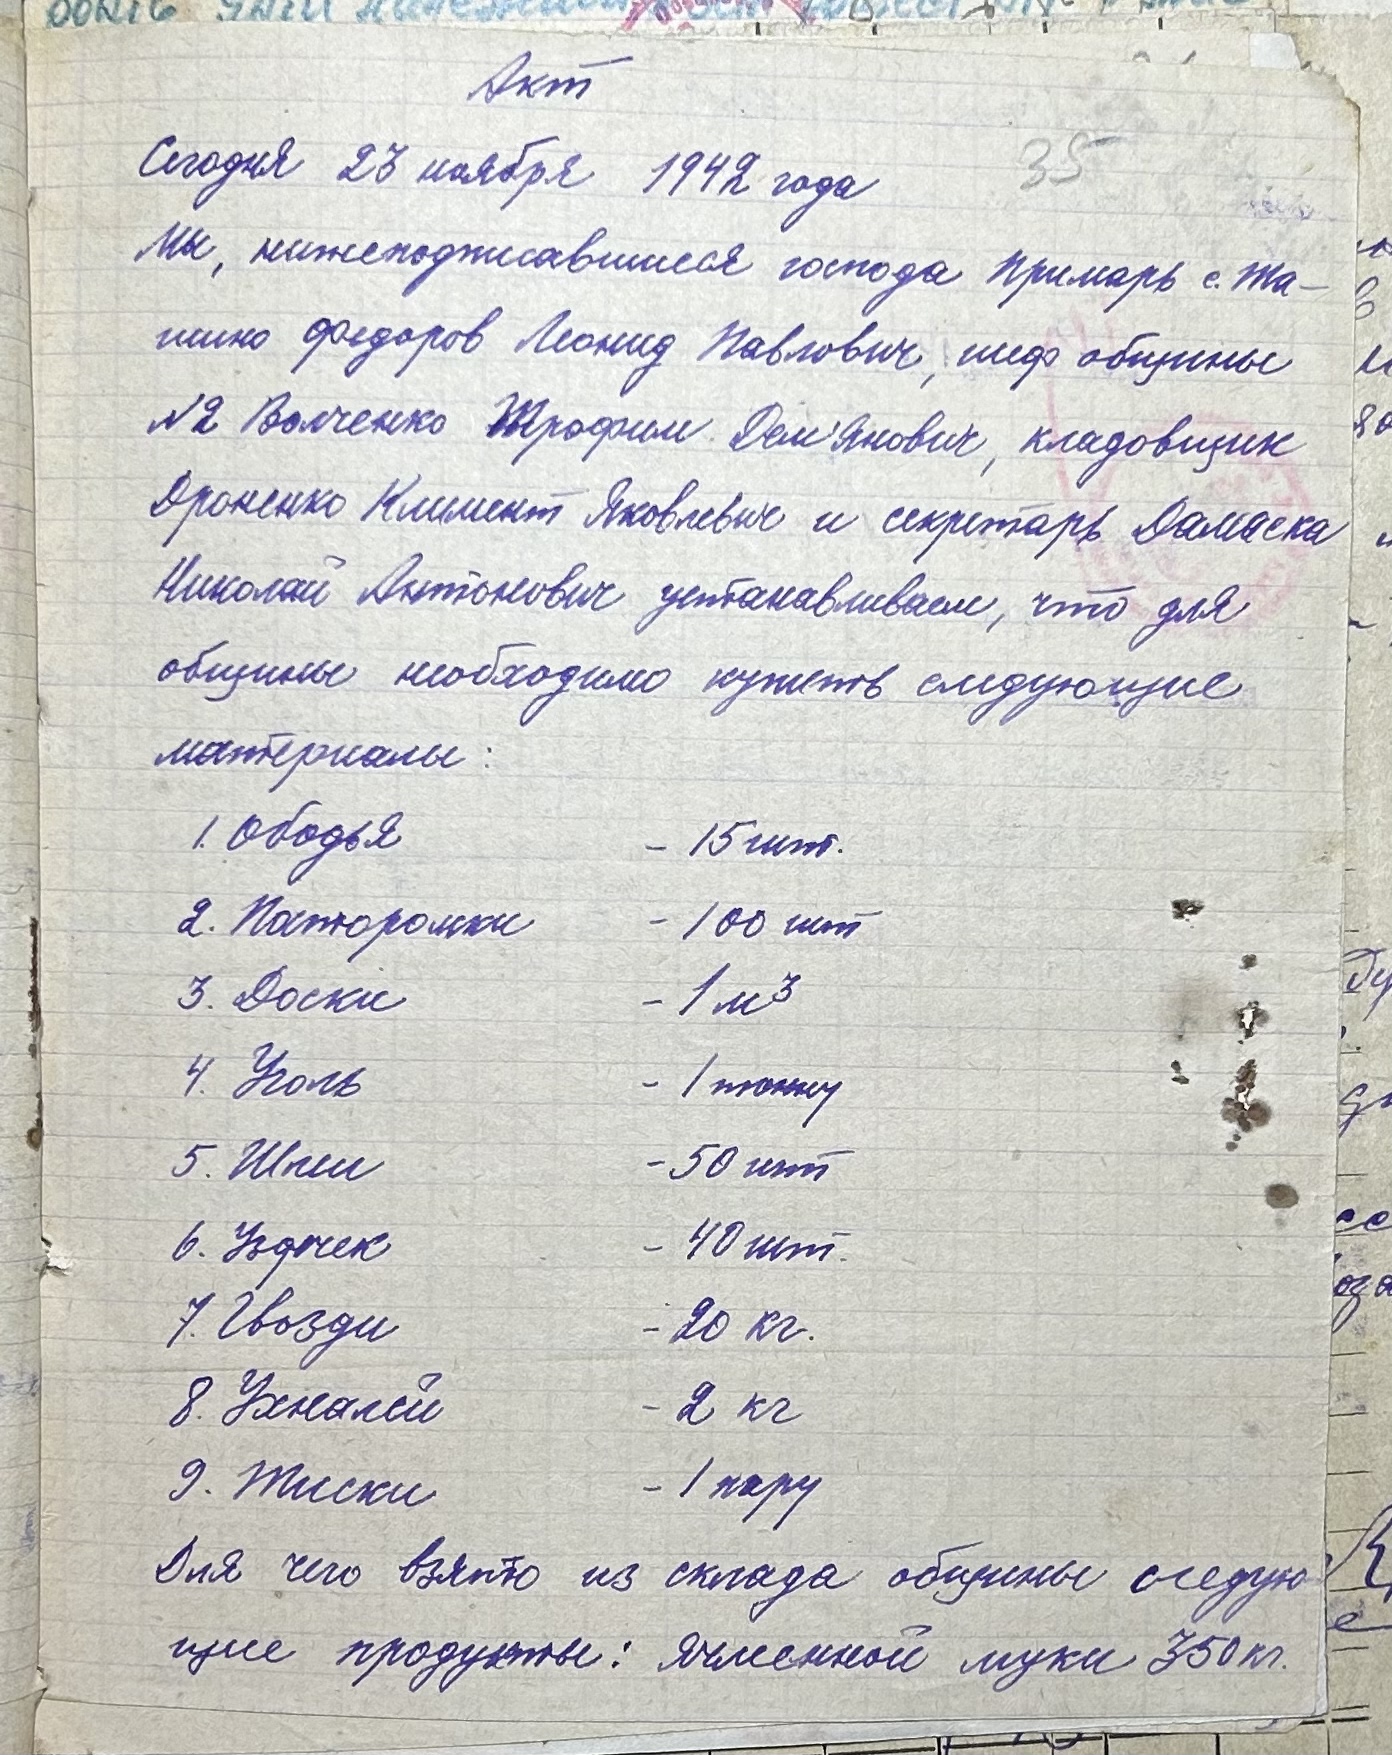 Акт
35
Сегодня 23 ноября 1942 года
Мы, нижеподписавшиеся господа Примарь с. Жа-
шино Федоров Леонид Павлович, шеф общины
№2 Волченко Трофим Дем'янович, кладовщик
Дроненко Климент Яковлевич и секретарь Дамаска
Николай Антонович устанавливаем, что для
общины необходимо купить следующие
материалы:
1. Ободья - 15 шт.
2. - 100 шт
3. Доски - 1 м³
4. Уголь - 1 тонну
5. Шлеи - 50 шт
6. Уздечек - 40 шт.
7. Гвозди - 20 кг.
8. Ухналей - 2 кг
9. Тиски - 1 пару
Для чего взято из склада общины следую-
щие продукты: ячменной муки 350 кг.